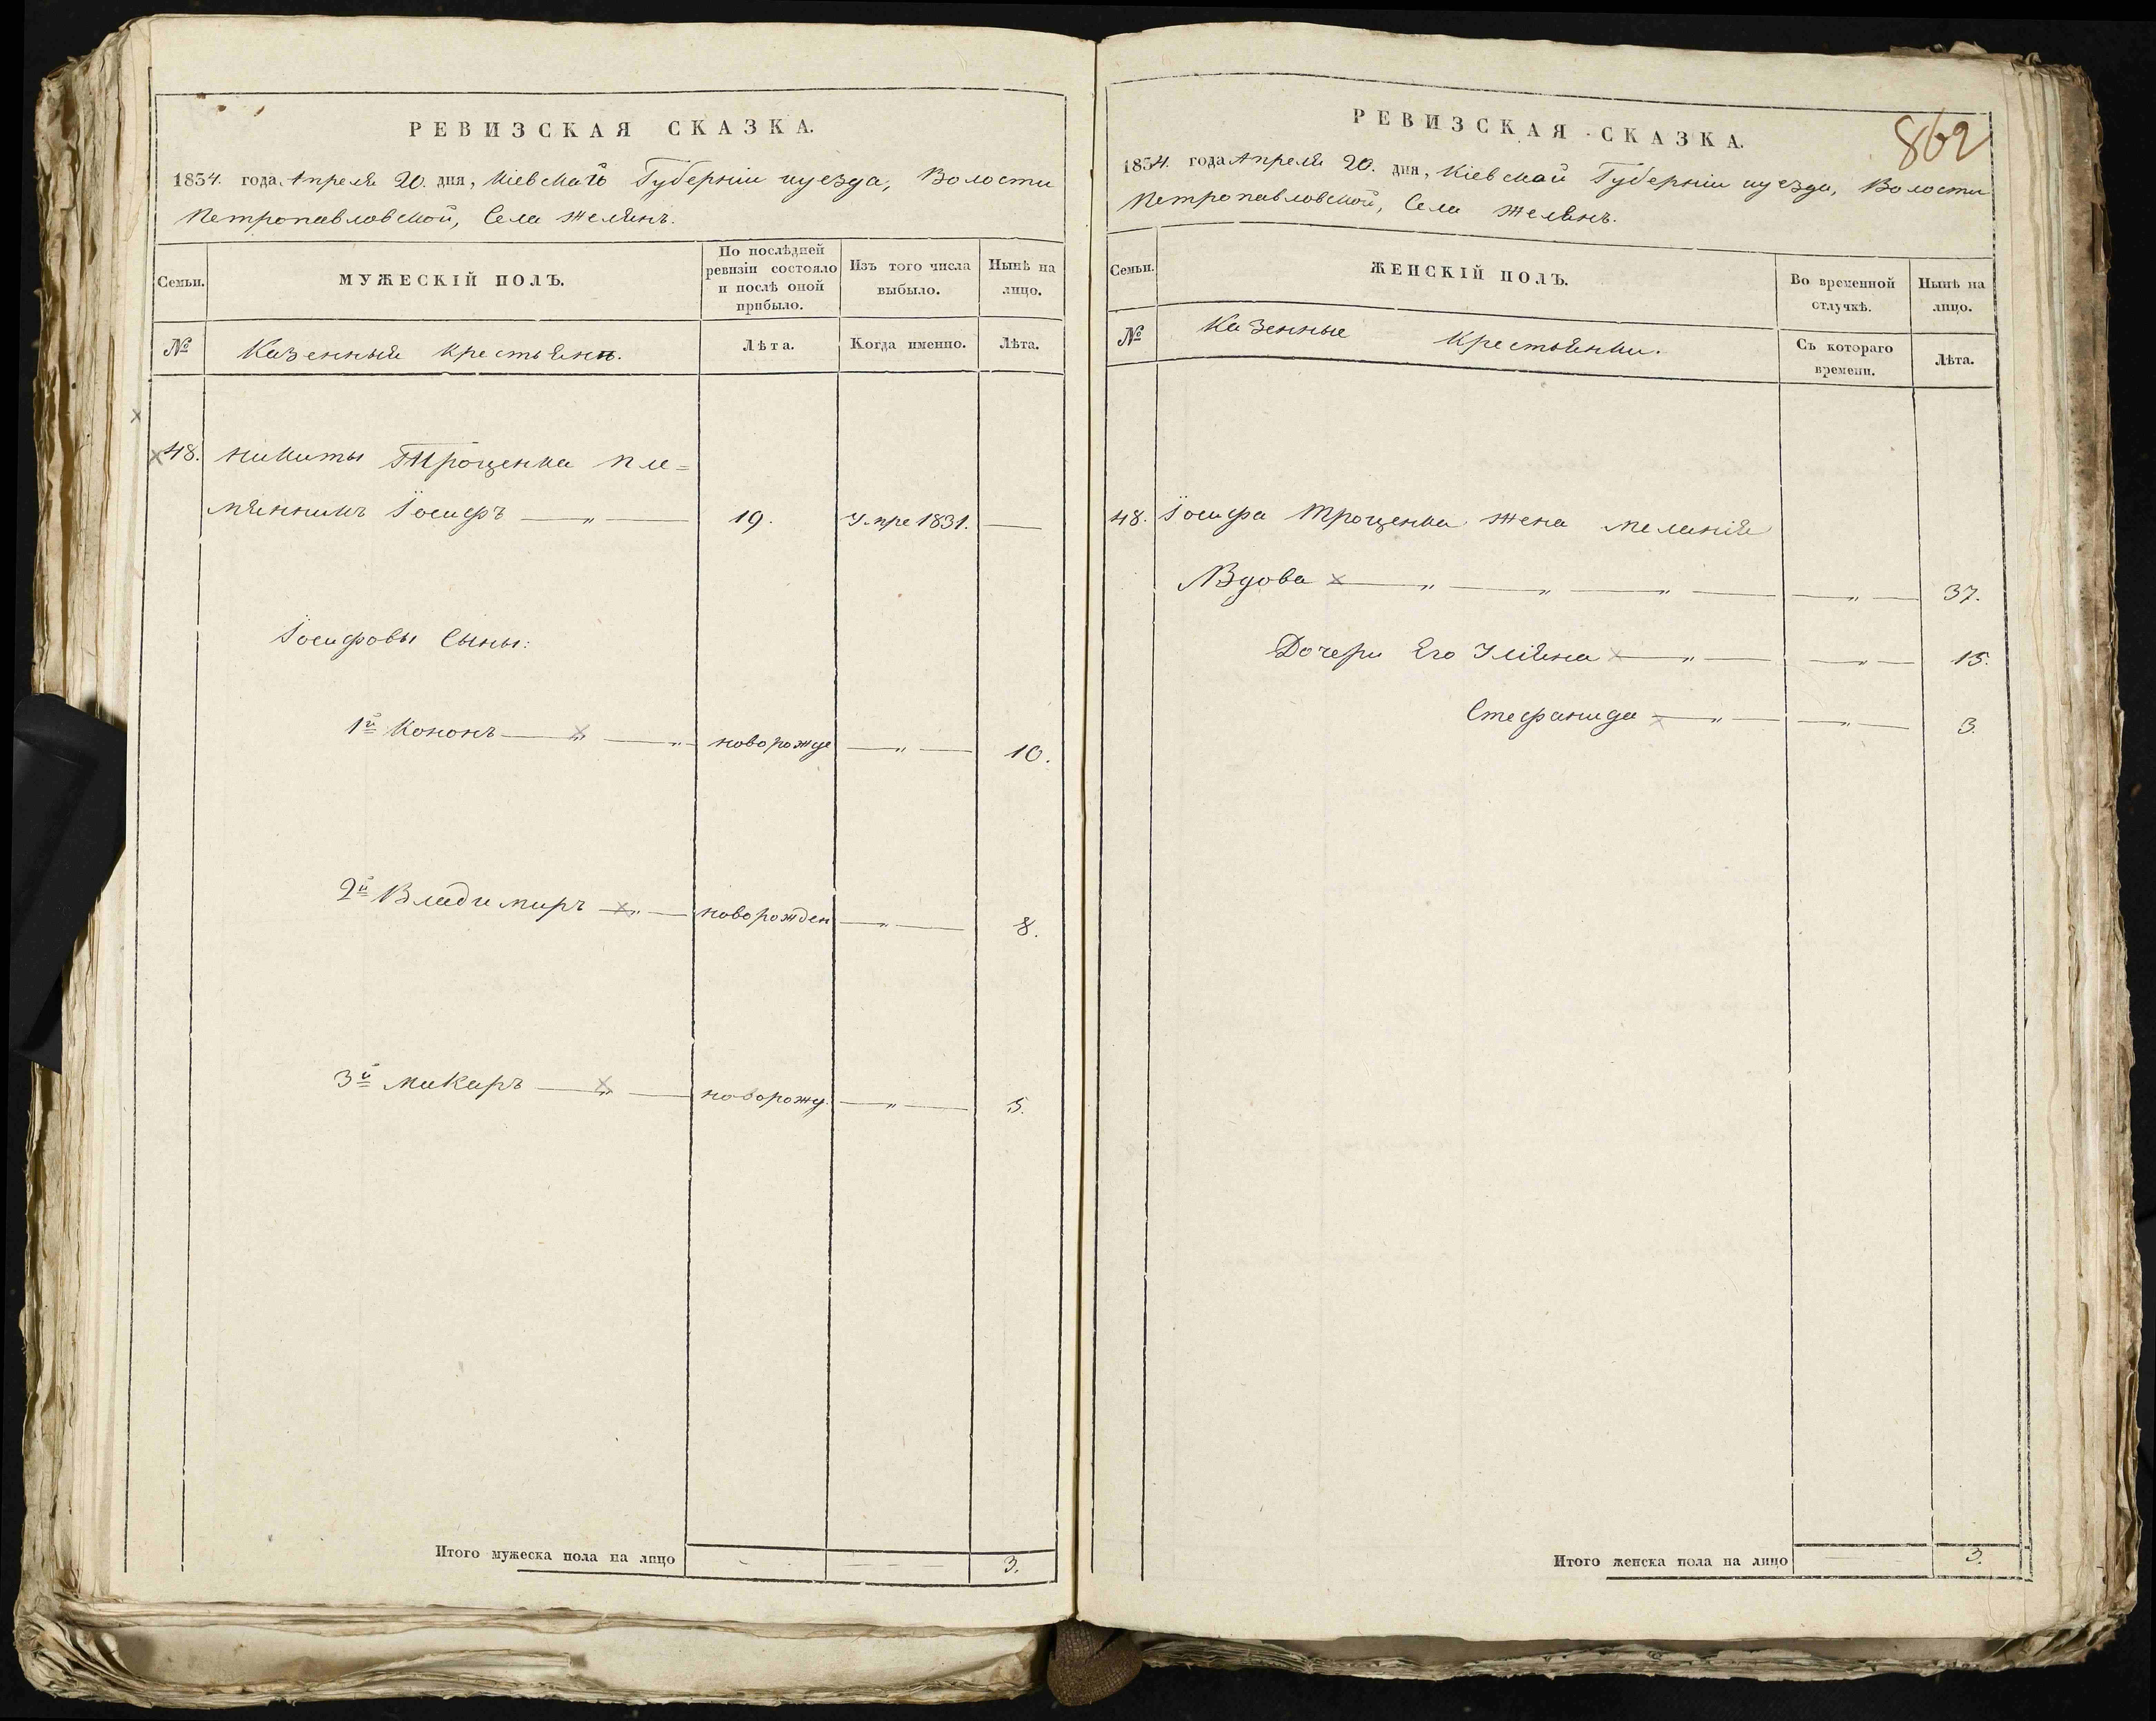 РЕВИЗСКАЯ СКАЗКА.
1834. года Апреля 20. дня, Кіевской Губерніи иуезда, Волости
Петропавловской, Села Желянъ.
Семьи.
МУЖЕСКІЙ ПОЛЪ.
По послѣдней ревизіи состояло и послѣ оной прибыло.
Изъ того числа выбыло.
Нынѣ на лицо.
№
Казенныя крестьяни.
Лѣта.
Когда именно.
Лѣта.
48. Никиты Троценка пле=
мянникъ Іосифъ — „ — 19. Умре 1831. —
Іосифовы Сыны:
1й Кононъ — „ — „ новорожде — „ — 10.
2й Владимиръ — „ — новорожден — „ — 8.
3й Макаръ — „ — новорожд. — „ — 5.
Итого мужеска пола на лицо 3.
862
РЕВИЗСКАЯ СКАЗКА.
1834. года Апреля 20. дня, Кіевской Губерніи иуезда, Волости
Петропавловской, Села Желянъ.
Семьи.
ЖЕНСКІЙ ПОЛЪ.
Во временной отлучкѣ.
Нынѣ на лицо.
№
Казенные Крестьянки.
Съ котораго времени.
Лѣта.
48. Іосифа Троценка жена Меланія
Вдова — „ — „ — „ — „ — 37.
Дочери Его Уліяна — „ — — „ — 15.
Стефанида — „ — — „ — 3.
Итого женска пола на лицо 3.